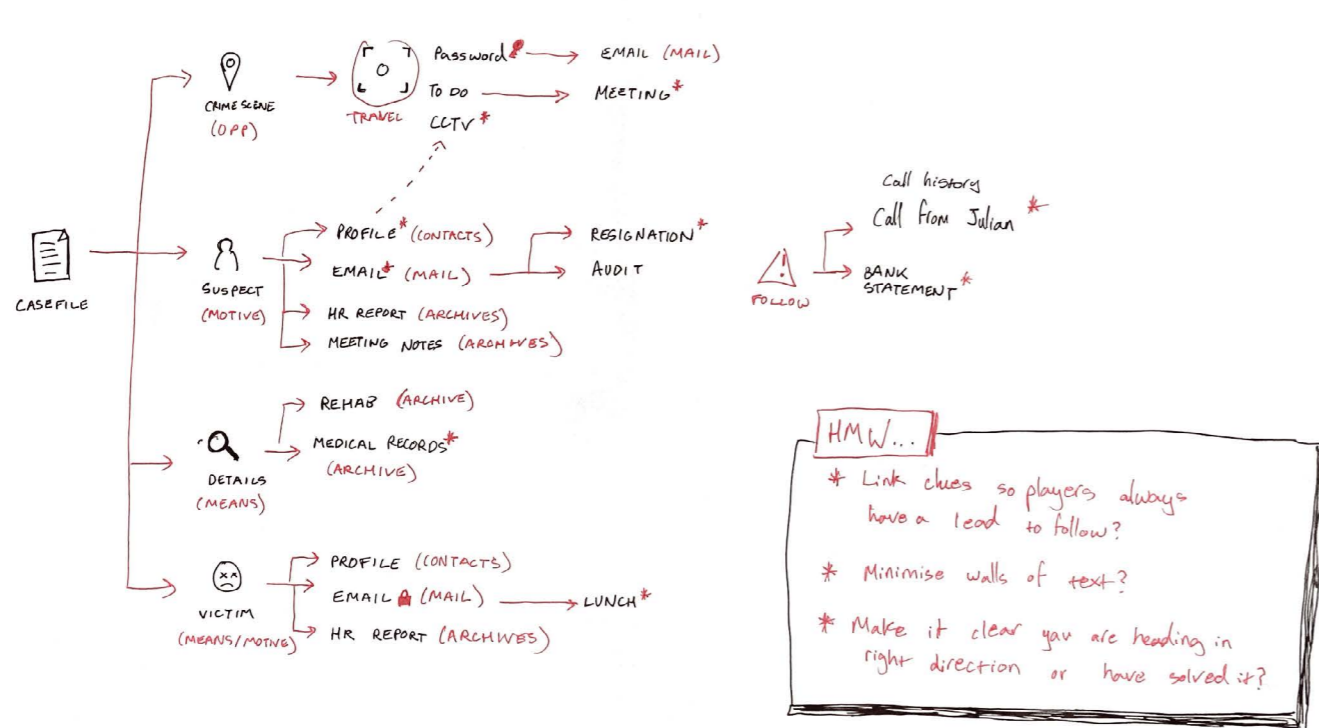 Password → EMAIL (MAIL)
TO DO → MEETING*
CCTV*
TRAVEL
CRIME SCENE
(OPP)
CASEFILE
SUSPECT
(MOTIVE)
PROFILE* (CONTACTS)
EMAIL* (MAIL)
RESIGNATION*
AUDIT
HR REPORT (ARCHIVES)
MEETING NOTES (ARCHIVES)
Call history
Call from Julian *
BANK
STATEMENT*
FOLLOW
DETAILS
(MEANS)
REHAB (ARCHIVE)
MEDICAL RECORDS*
(ARCHIVE)
VICTIM
(MEANS/MOTIVE)
PROFILE (CONTACTS)
EMAIL (MAIL)
LUNCH*
HR REPORT (ARCHIVES)
HMW...
* Link clues so players always
have a lead to follow?
* Minimise walls of text?
* Make it clear you are heading in
right direction or have solved it?